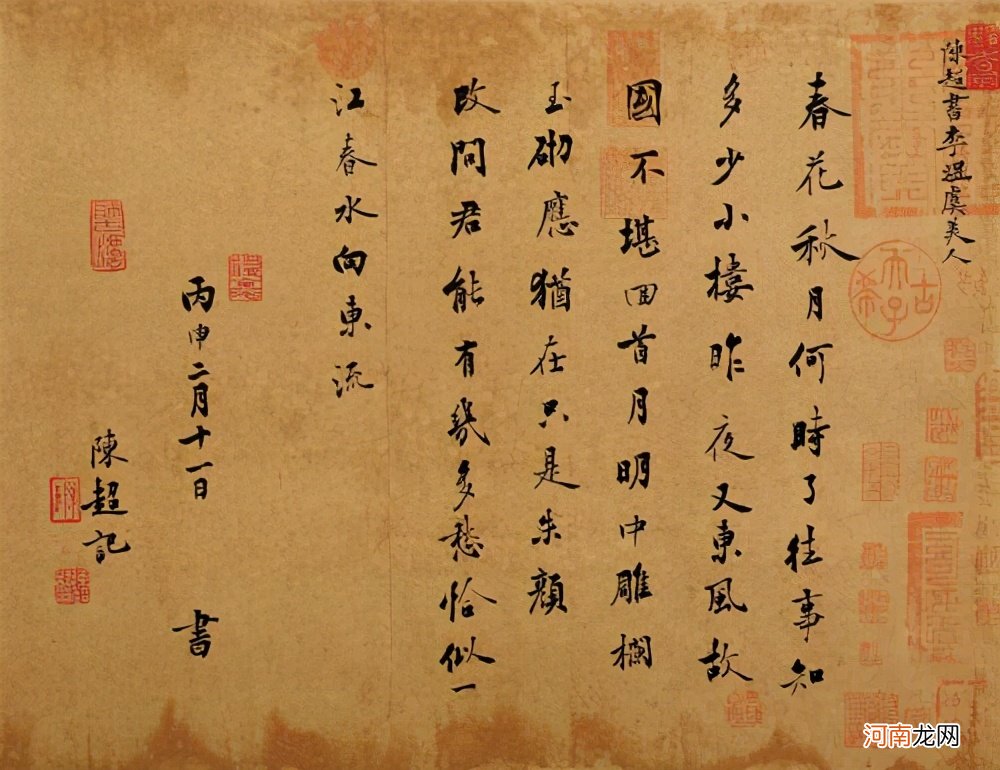 陳超書李煜虞美人
春花秋月何時了往事知
多少小樓昨夜又東風故
國不堪回首月明中雕欄
玉砌應猶在只是朱顏
改問君能有幾多愁恰似一
江春水向東流
丙申二月十一日 書
陳超記
古希天子
河南龙网